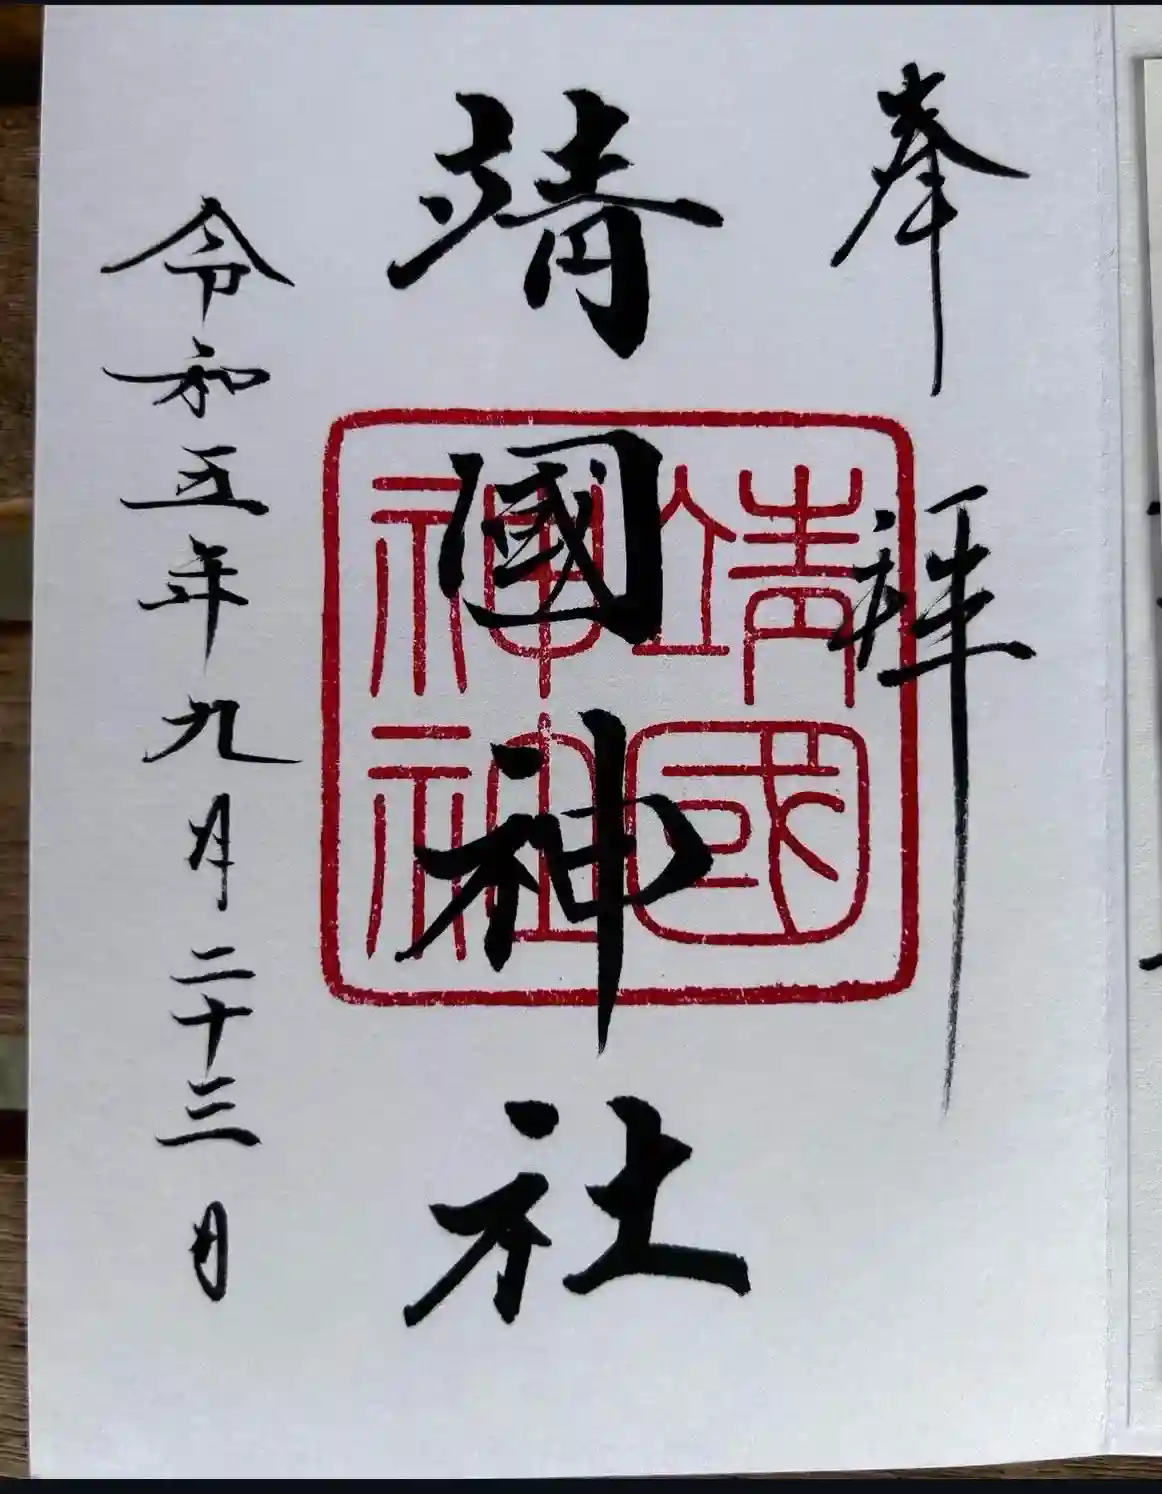 奉拝
靖國神社
靖國
神社
令和五年九月二十三日